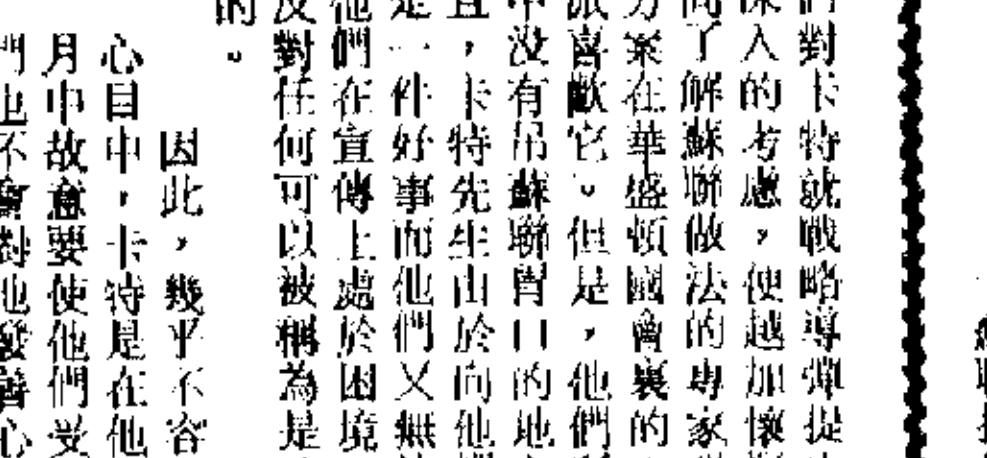 對卡特就戰略導彈提
入的考慮，便越加懷
了解蘇聯做法的專家
案在華盛頓國會裏的
喜歡它。但是，他們
没有吊蘇聯胃口的地
，卡特先生由於向他
一件好事而他們又無
們在宣傳上處於困境
對任何可以被稱為是
的。
因此，幾乎不容
心目中，卡特是在他
月中故意要使他們受
也不會對他發善心